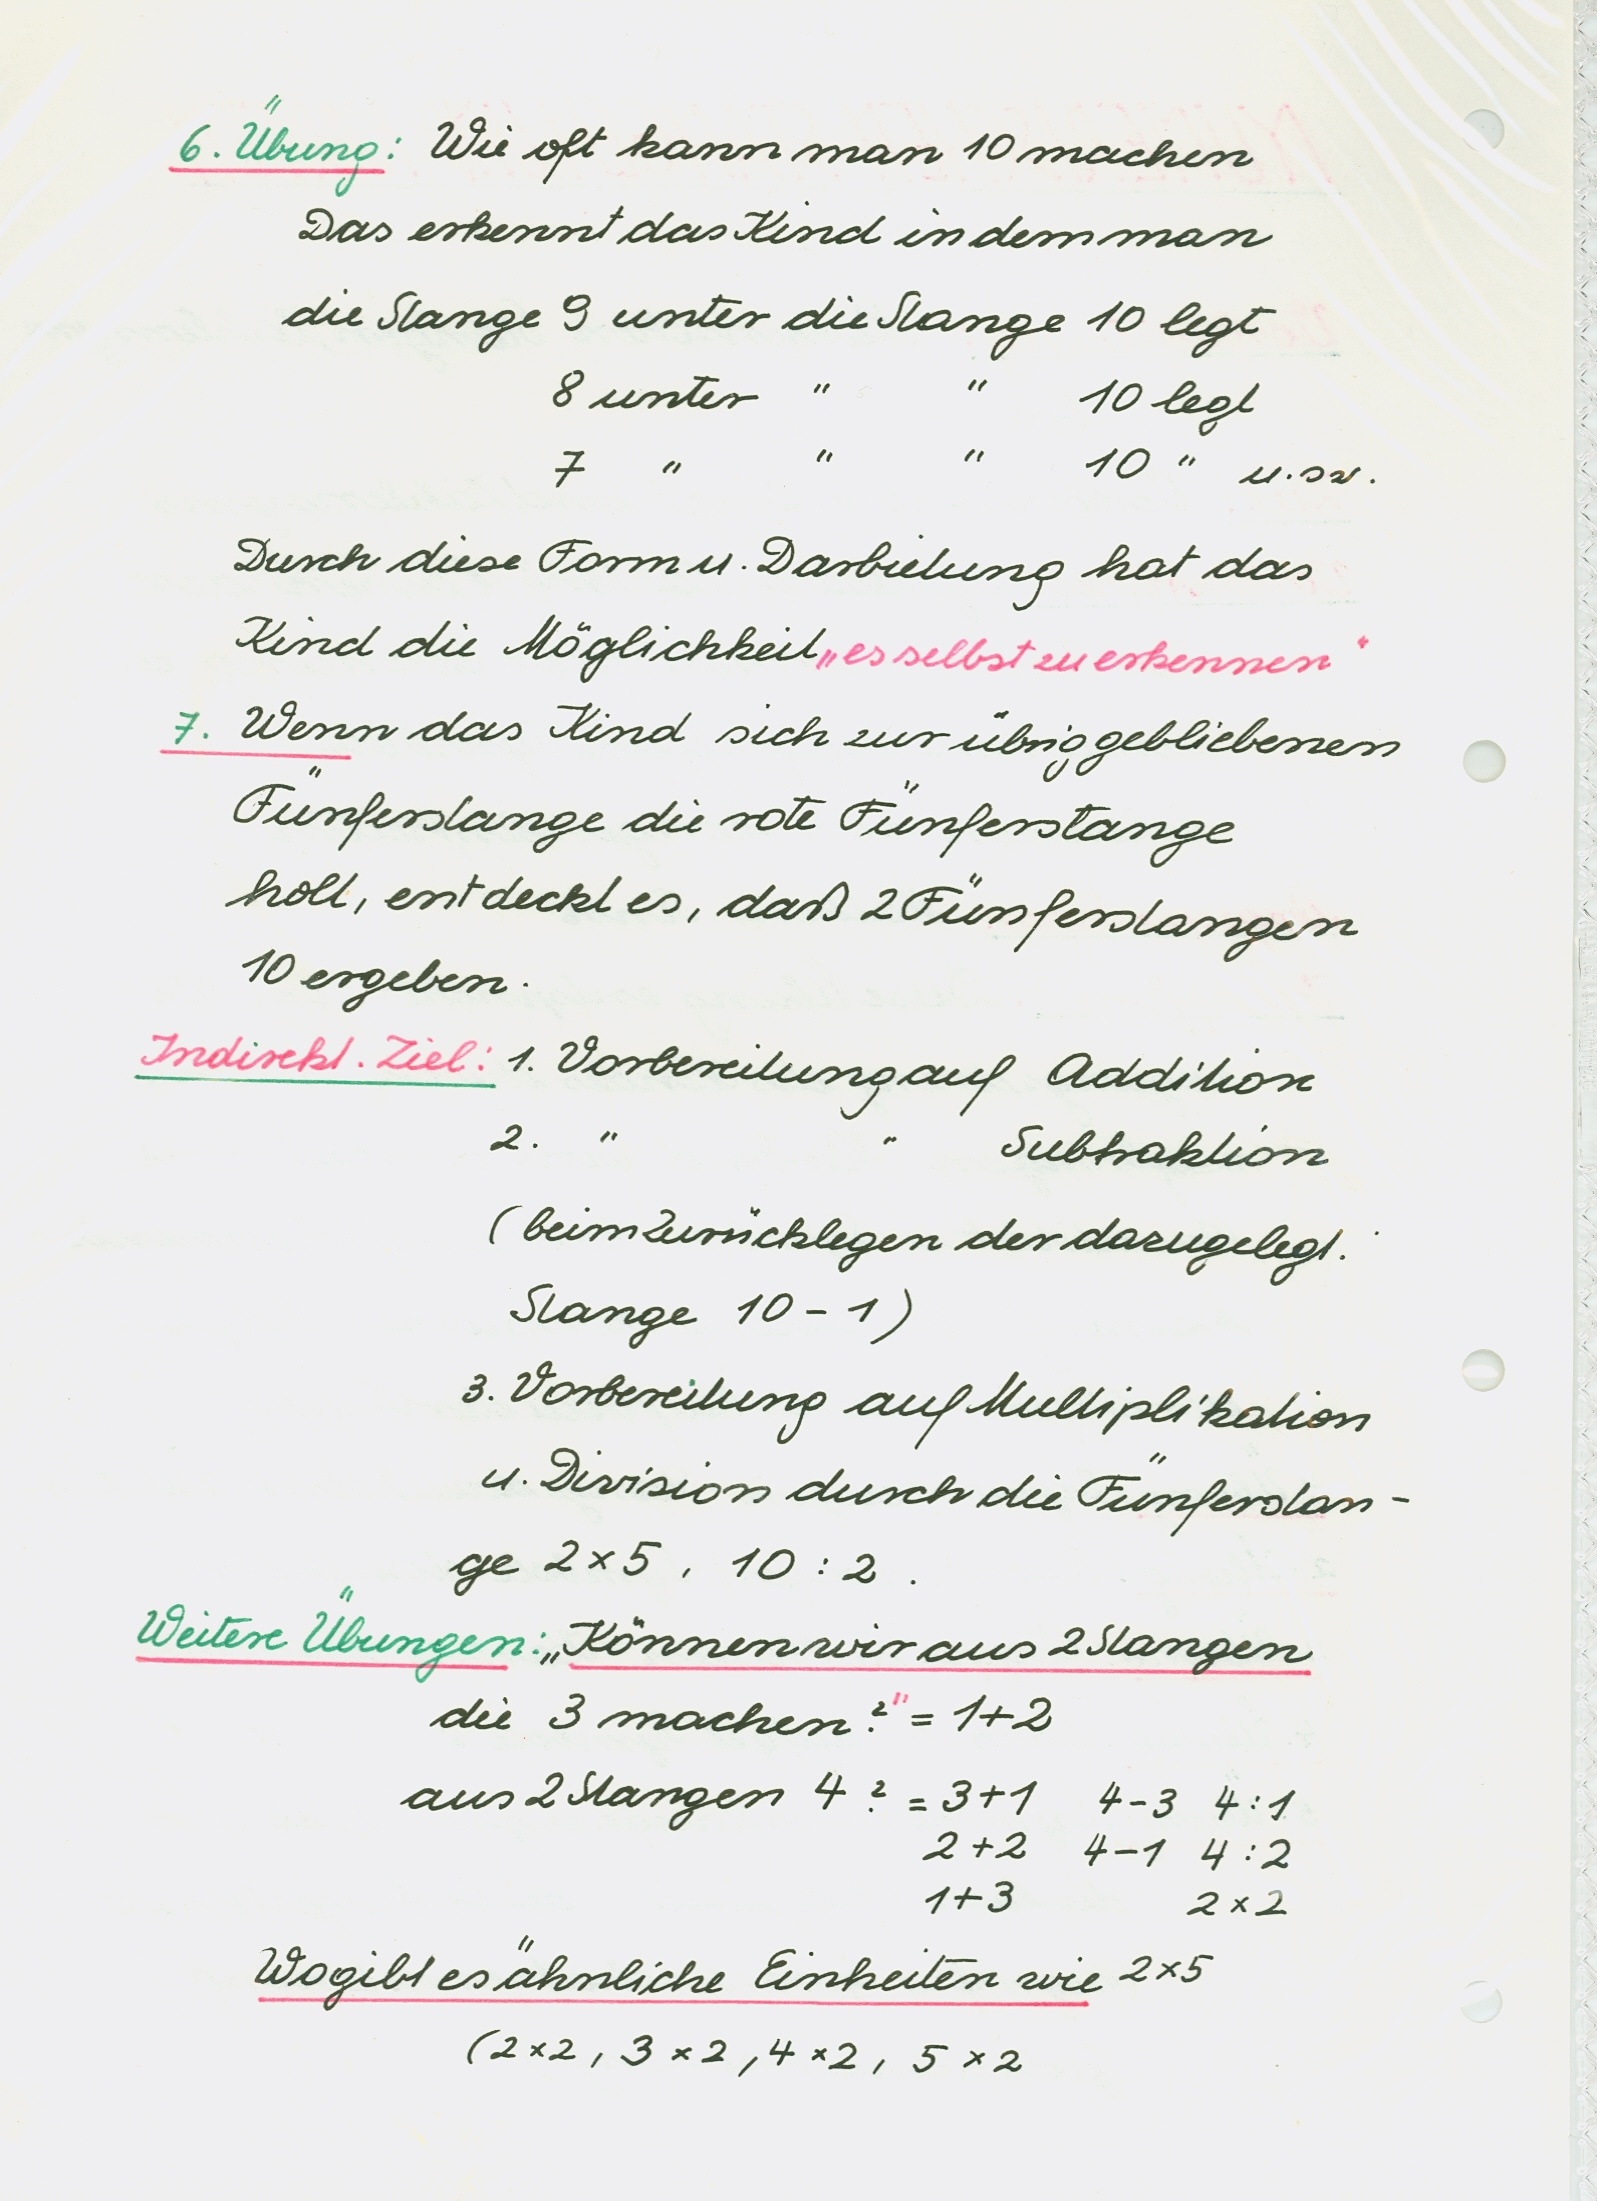 6. Übung: Wie oft kann man 10 machen
Das erkennt das Kind indem man
die Stange 9 unter die Stange 10 legt
8 unter " " 10 legt
7 " " " 10 " u.sw.
Durch diese Form u. Darbietung hat das
Kind die Möglichkeit „es selbst zu erkennen"
7. Wenn das Kind sich zur übriggebliebenen
Fünferstange die rote Fünferstange
holt, entdeckt es, daß 2 Fünferstangen
10 ergeben.
Indirekt. Ziel: 1. Vorbereitung auf Addition
2. " " Subtraktion
(beim Zurücklegen der dazugelegt.
Stange 10 - 1)
3. Vorbereitung auf Multiplikation
u. Division durch die Fünferstan-
ge 2 x 5, 10 : 2.
Weitere Übungen: „Können wir aus 2 Stangen
die 3 machen?" = 1+2
aus 2 Stangen 4? = 3+1 4-3 4:1
2+2 4-1 4:2
1+3 2x2
Wo gibt es ähnliche Einheiten wie 2x5
(2x2, 3x2, 4x2, 5x2